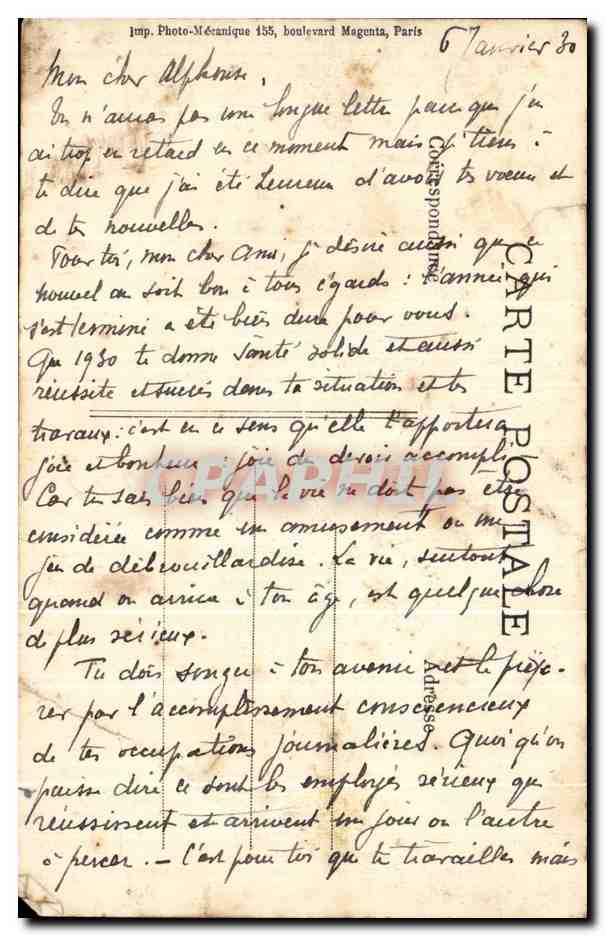 Imp. Photo-Mécanique 155, boulevard Magenta, Paris
6 Janvier 30
Mon cher Alphonse,
Tu n'auras pas une longue lettre parce que j'en
ai trop en retard en ce moment mais je tiens à
te dire que j'ai été heureux d'avoir tes voeux et
de tes nouvelles.
Pour toi, mon cher Ami, je désire aussi que ce
nouvel an soit bon à tous égards : l'année qui
s'est terminé a été bien dure pour vous.
Que 1930 te donne santé solide et aussi
réussite et succès dans ta situation et tes
travaux : c'est en ce sens qu'elle t'apportera
joie et bonheur : joie du devoir accompli.
Car tu sais bien que la vie ne doit pas être
considérée comme un amusement ou un
jeu de débrouillardise. La vie, surtout
quand on arrive à ton âge, est quelque chose
d plus sérieux.
Tu dois songer à ton avenir et le prépa-
rer par l'accomplissement consciencieux
de tes occupations journalières. Quoi qu'on
puisse dire ce sont les employés sérieux qui
réussissent et arrivent un jour ou l'autre
à percer. - C'est pour toi que tu travailles mais
CARTE POSTALE
Correspondance
Adresse
CPAPHIL